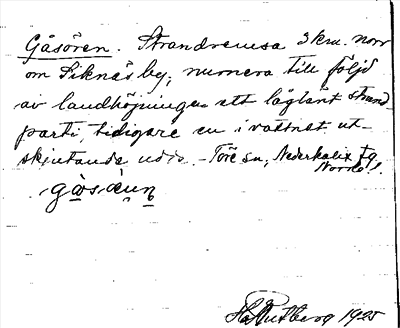 Gåsören. Strandremsa 3 km. norr
om Siknäs by, numera till följd
av landhöjningen ett låglänt strand
parti, tidigare en i vattnet ut-
skjutande udde. - Töre sn, Nederkalix tg.
Norrb. l.
1925